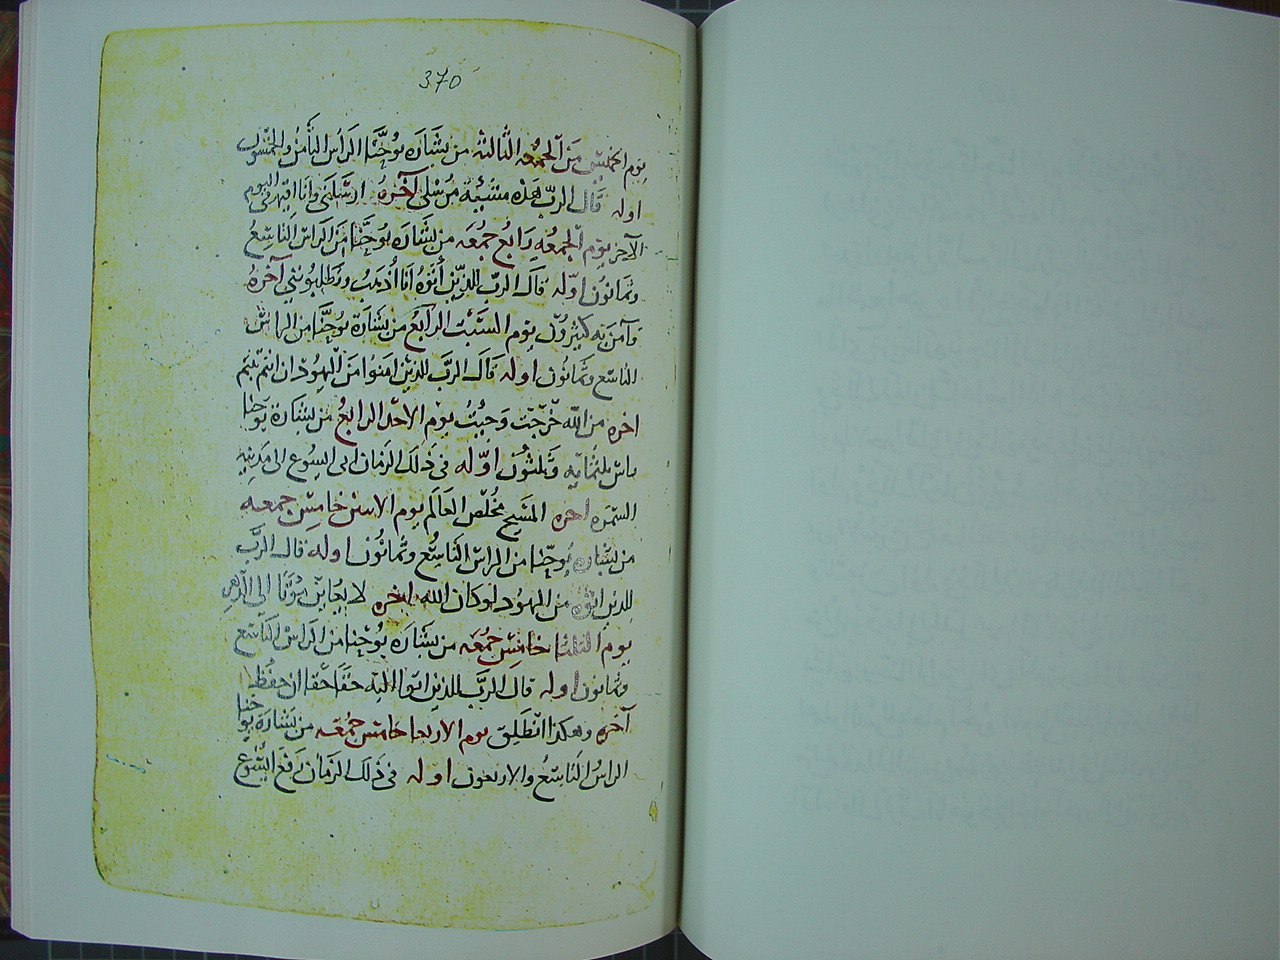 370
يوم الخميس من الجمعه الثالثه من بشاره يوحنا الراس الثامن والخمسون
اوله قال الرب هذه مشيئة مرسلي آخره ارسلني وانا اقيمه في اليوم
الآخر يوم الجمعه رابع جمعه من بشاره يوحنا من الراس التاسع
وثمانون اوله قال الرب للذين أتوه انا أذهب وتطلبوني آخره
فآمن به كثيرون يوم السبت الرابع من بشارة يوحنا من الراس
التاسع وثمانون اوله قال الرب للذين امنوا من اليهود ان انتم ثبتم
اخره من الله خرجت وجيت يوم الاحد الرابع من بشارة يوحنا
راس ثلثمايه وثلثون اوله في ذلك الزمان اتى ايسوع الى مدينه
السمره اخره المسيح مخلص العالم يوم الاثنين خامس جمعه
من بشاره يوحنا من الراس التاسع وثمانون اوله قال الرب
للذين اتوه من اليهود لو كان الله اخره لا يعاين موتا الى الدهر
يوم الثلثا خامس جمعه من بشاره يوحنا من الراس التاسع
وثمانون اوله قال الرب للذين اتوا اليه حقا حقا ان حفظ
آخره وهكذا انطلق يوم الاربعا خامس جمعه من بشاره يوحنا
الراس التاسع والاربعون اوله في ذلك الزمان رفع ايسوع